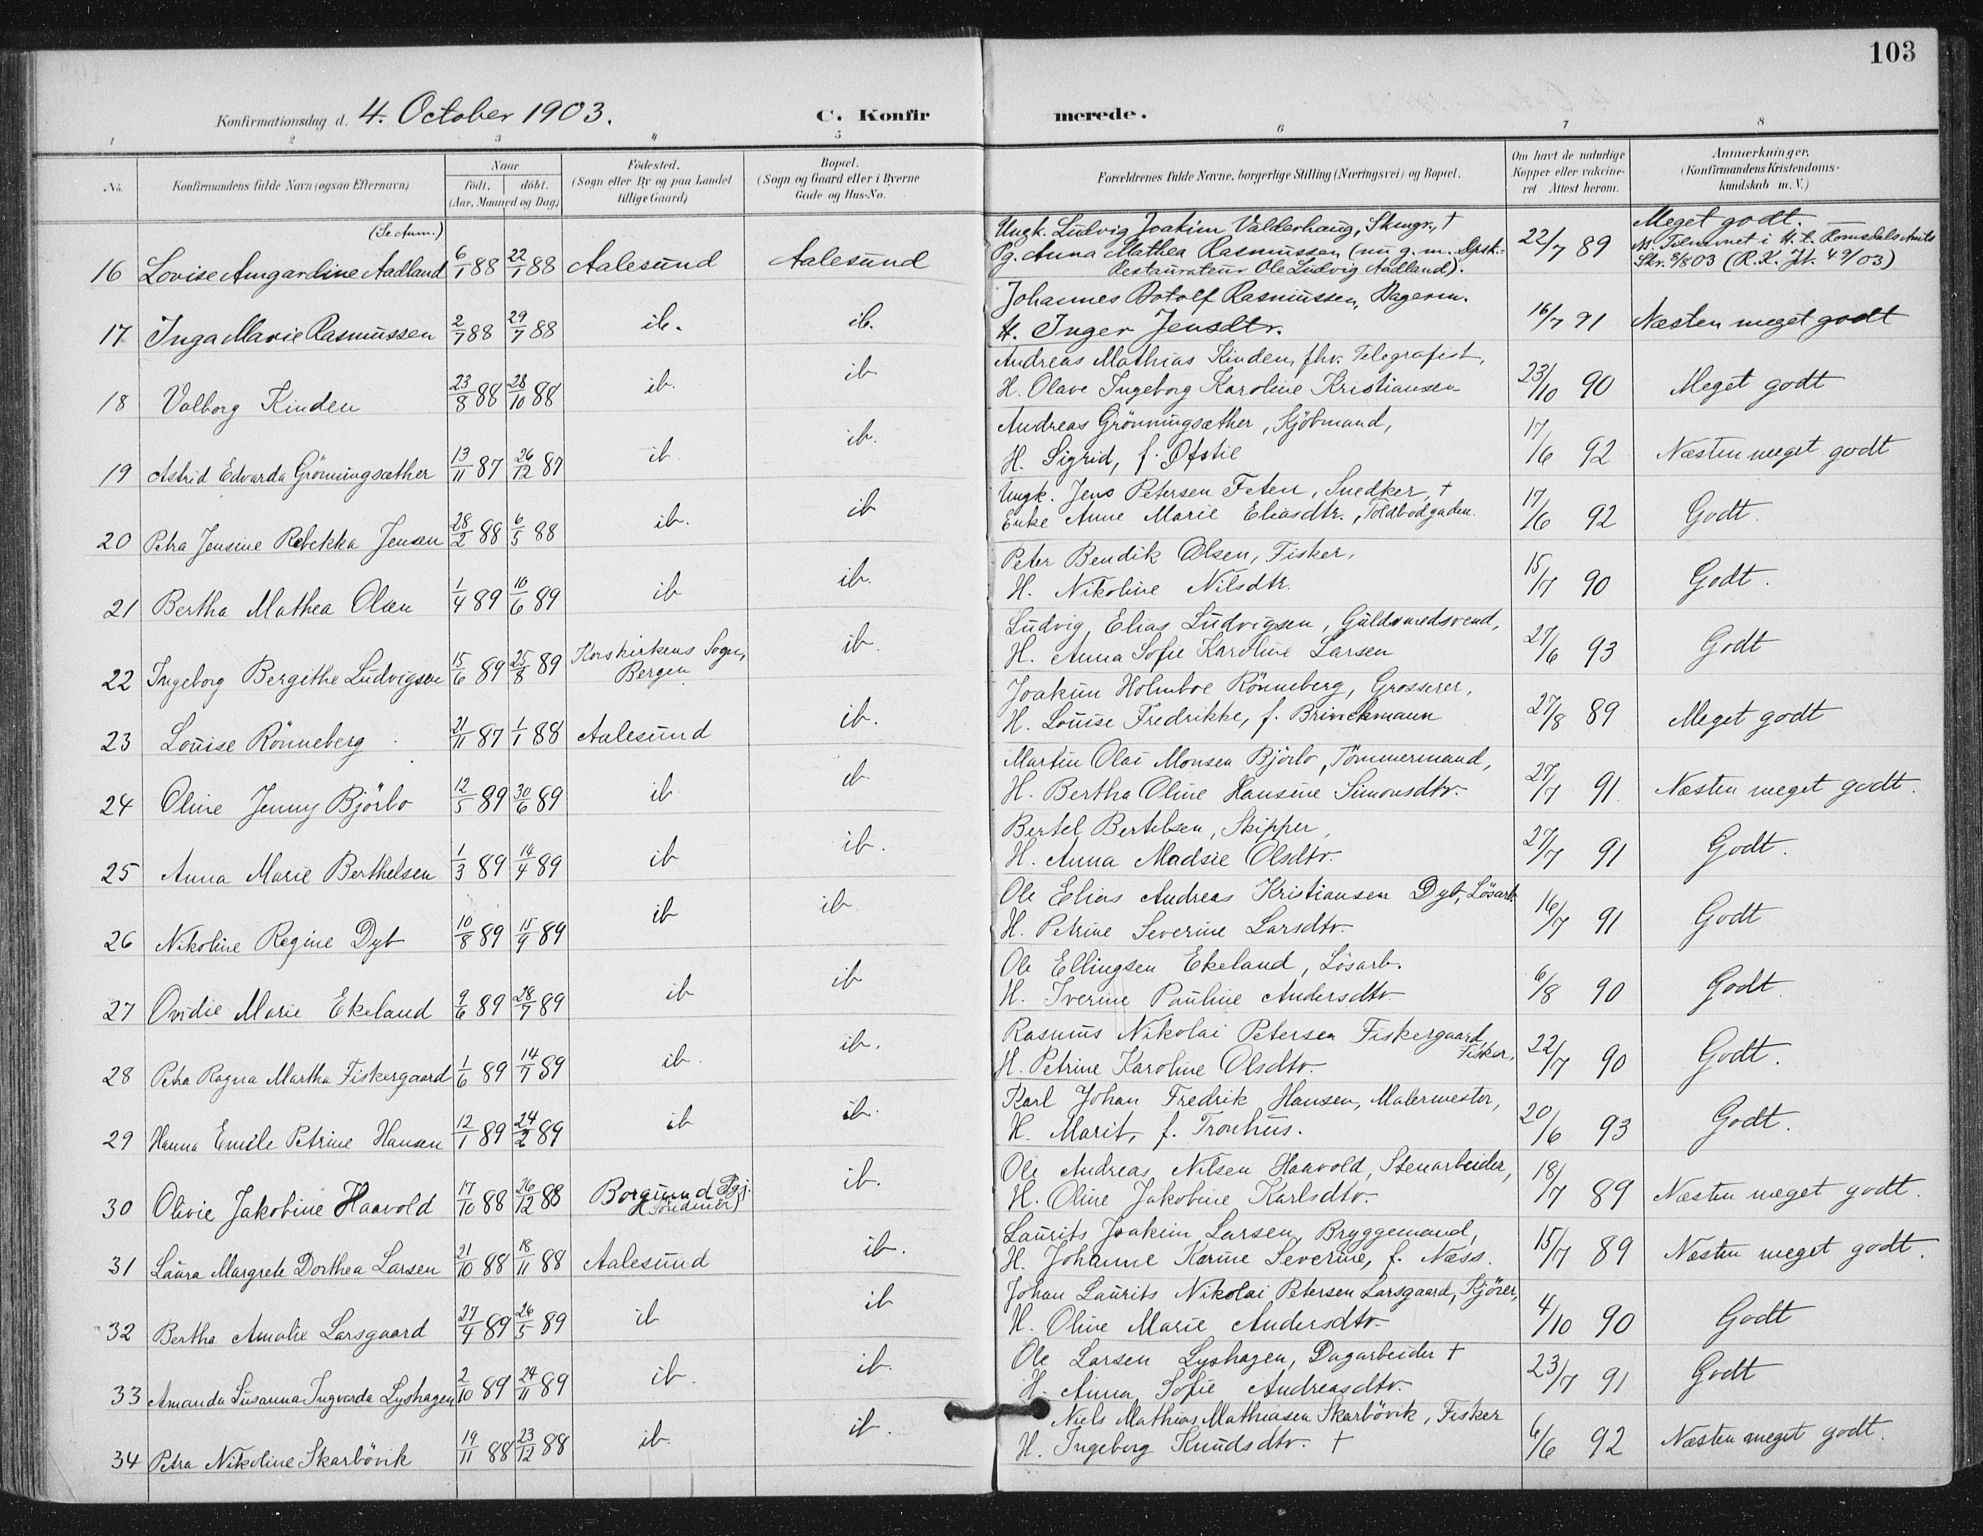 103
Konfirmationsdag d. 4. October 1903. C. Konfir merede.
1 2 3 4 5 6 7 8
No. Konfirmandens fulde Navn (ogsaa Efternavn) Naar födt. döbt. (Aar, Maaned og Dag) Födested. (Sogn eller By og paa Landet tillige Gaard) Bopæl. (Sogn og Gaard eller i Byerne Gade og Hus-No. Forældrenes fulde Navne, borgerlige Stilling (Næringsvei) og Bopæl. Om havt de naturlige Kopper eller vakcineret Attest herom. Anmærkninger. (Konfirmandens Kristendomskundskab m. V.)
(Se Anm.) Ungk. Ludvig Joakim Valderhaug, Skmgr., † Meget godt.
16 Lovise Amgardine Aadland 6/1 88 22/1 88 Aalesund Aalesund Pg. Anna Mathea Rasmussen (nu g. m. Dpsk. 22/7 89 M. Tilnavnet i H. t. Romsdals Amts
Restauratør Ole Ludvig Aadland). Skr. 9/8 03 (R. K. Jt. 49/03)
Johannes Botolf Rasmussen, Dagarm.
17 Inga Marie Rasmussen 2/7 88 29/7 88 ib. ib. H. Inger Jensdtr. 16/7 91 Næsten meget godt
Andreas Mathias Kinden, fhv. Telegrafist,
18 Valborg Kinden 23/8 88 28/10 88 ib. ib H. Olave Ingeborg Karoline Kristiansen 23/10 90 Meget godt
Andreas Grönningsæther, Kjöbmand,
19 Astrid Edvarda Grönningsæther 13/11 87 26/12 87 ib. ib. H. Sigrid, f. Øfstie 17/6 92 Næsten meget godt
Ungk. Jens Petersen Feten, Snedker, †
20 Petra Jensine Rebekka Jensen 28/2 88 6/5 88 ib. ib Enke Anne Marie Eliasdtr., Toldbodgaden. 17/6 92 Godt.
Peter Bendik Olsen, Fisker,
21 Bertha Mathea Olsen 1/4 89 10/6 89 ib ib. H. Nikoline Nilsdtr. 15/7 90 Godt.
Ludvig Elias Ludvigsen, Guldsmedsvend,
22 Ingeborg Bergithe Ludvigsen 15/6 89 25/8 89 Korskirkens Sogn, Bergen ib. H. Anna Sofie Karoline Larsen 27/6 93 Godt
Joakim Holmboe Rönneberg, Grosserer,
23 Louise Rönneberg 21/11 87 1/1 88 Aalesund ib. H. Louise Fredrikke, f. Brinckmann 27/8 89 Meget godt
Martin Olai Monsen Björlo, Tömmermand,
24 Oline Jenny Björlo 12/5 89 30/6 89 ib. ib. H. Bertha Oline Hansine Simonsdtr. 27/7 91 Næsten meget godt.
Bertel Bertelsen, Skipper,
25 Anna Marie Berthelsen 1/3 89 14/4 89 ib ib. H. Anna Madsie Olsdtr. 27/7 91 Godt.
Ole Elias Andreas Kristiansen Dyb, Lösarb.
26 Nikoline Regine Dyb 10/8 89 15/9 89 ib ib. H. Petrine Severine Larsdtr. 16/7 91 Godt
Ole Ellingsen Ekeland, Lösarb.
27 Ovidie Marie Ekeland 9/6 89 28/7 89 ib ib H. Iverine Pauline Andersdtr. 6/8 90 Godt.
Rasmus Nikolai Petersen Fiskergaard, Fisker,
28 Petra Ragna Martha Fiskergaard 1/6 89 14/7 89 ib. ib. H. Petrine Karoline Olsdtr. 22/7 90 Godt.
Karl Johan Fredrik Hansen, Malermester,
29 Hanna Emilie Petrine Hansen 12/1 89 24/2 89 ib ib. H. Marit, f. Tronhus. 20/6 93 Godt.
Ole Andreas Nilsen Haavold, Stenarbeider,
30 Olivie Jakobine Haavold 17/10 88 26/12 88 Borgund Pgj. (Söndmör) ib. H. Oline Jakobine Karlsdtr. 18/7 89 Næsten meget godt.
Laurits Joakim Larsen, Bryggemand,
31 Laura Margrete Dorthea Larsen 21/10 88 18/11 88 Aalesund ib. H. Johanne Karine Severine, f. Næss. 15/7 89 Næsten meget godt.
Johan Laurits Nikolai Petersen Larsgaard, Kjörer,
32 Bertha Amalie Larsgaard 27/4 89 26/5 89 ib ib H. Oline Marie Andersdtr. 4/10 90 Godt
Ole Larsen Lyshagen, Dagarbeider †
33 Amanda Susanna Ingvarda Lyshagen 2/10 89 24/11 89 ib. ib. H. Anna Sofie Andreasdtr. 23/7 91 Godt
Niels Mathias Mathiasen Skarbövik, Fisker
34 Petra Nikoline Skarbövik 19/11 88 23/12 88 ib. ib. H. Ingeborg Knudsdtr. † 6/6 92 Næsten meget godt.